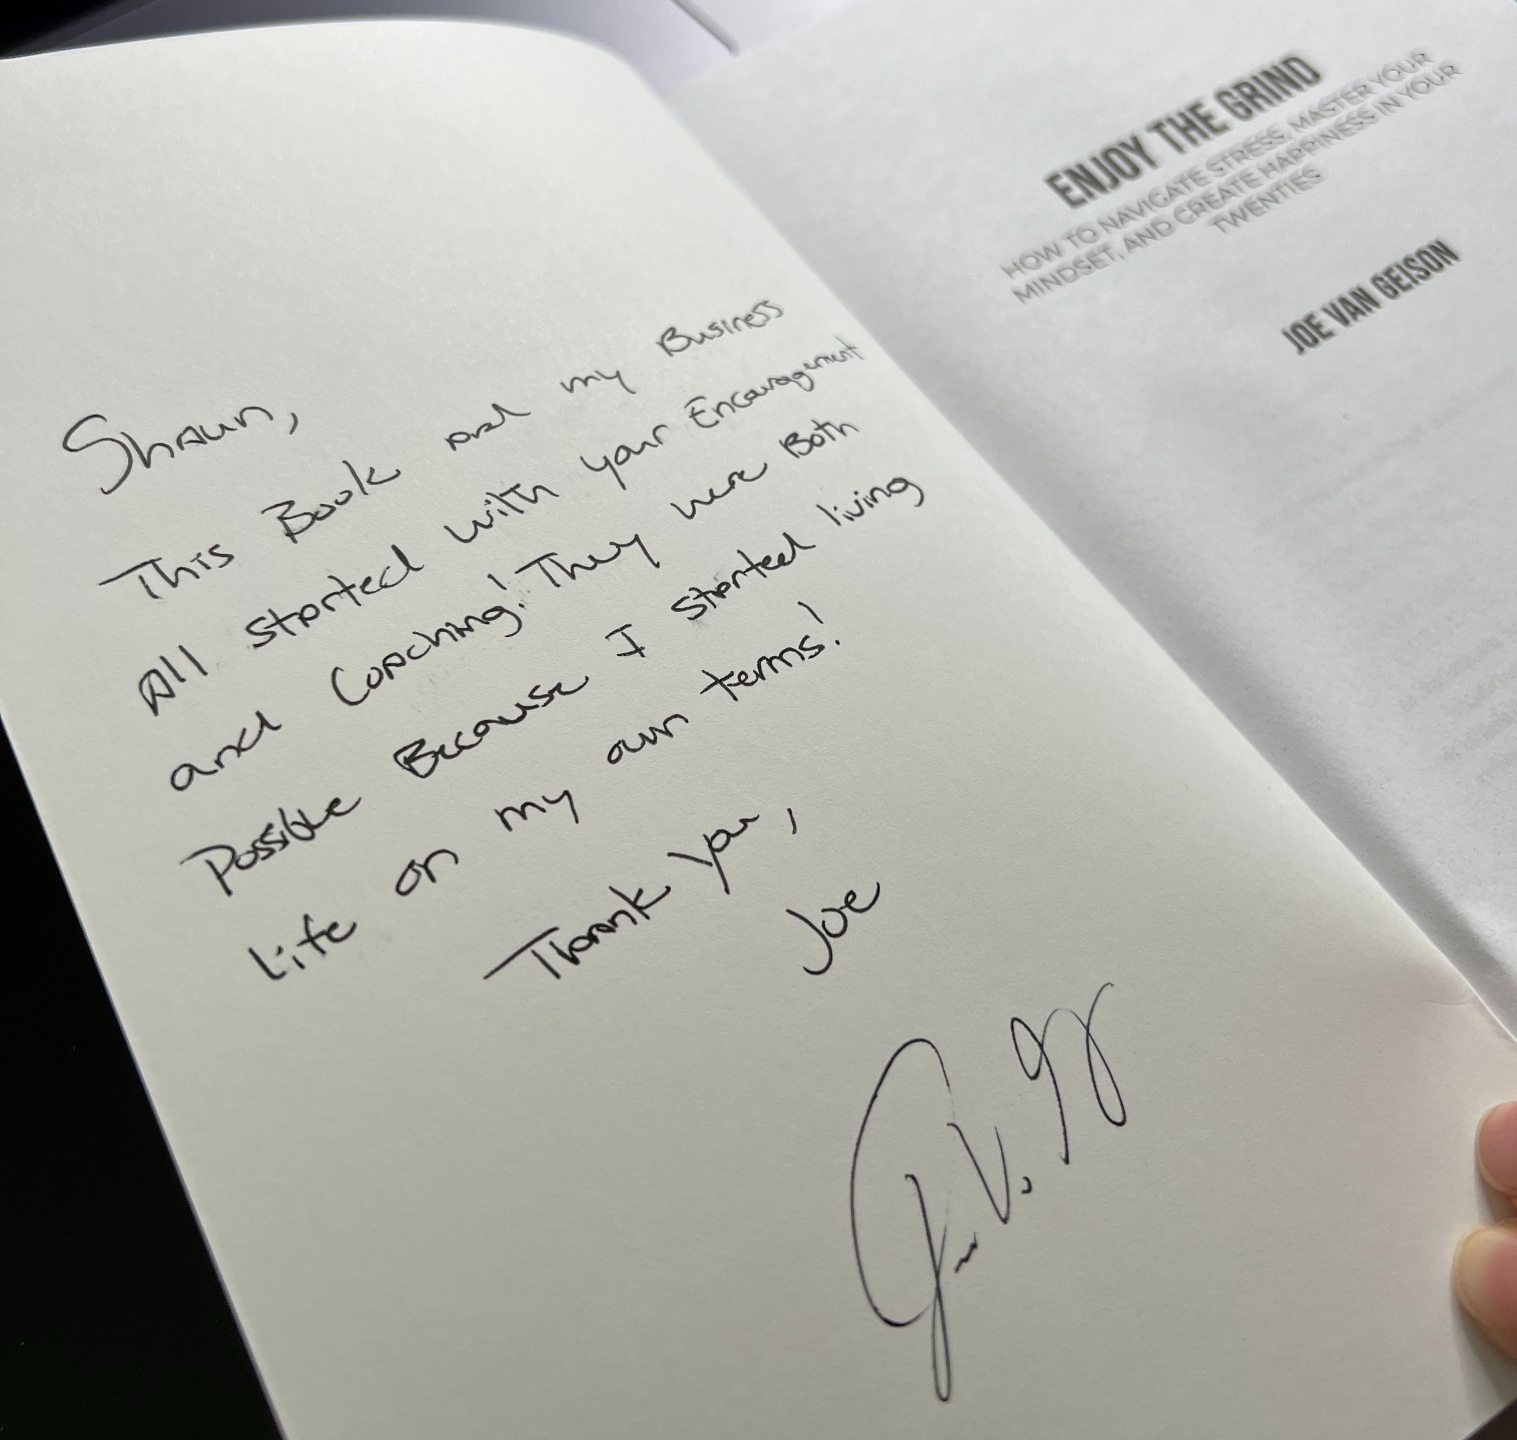 Shaun,
This Book and my Business
All started with your Encouragement
and Coaching! They were Both
Possible Because I started living
Life on my own terms!
Thank you,
Joe
ENJOY THE GRIND
HOW TO NAVIGATE STRESS, MASTER YOUR
MINDSET, AND CREATE HAPPINESS IN YOUR
TWENTIES
JOE VAN GEISON